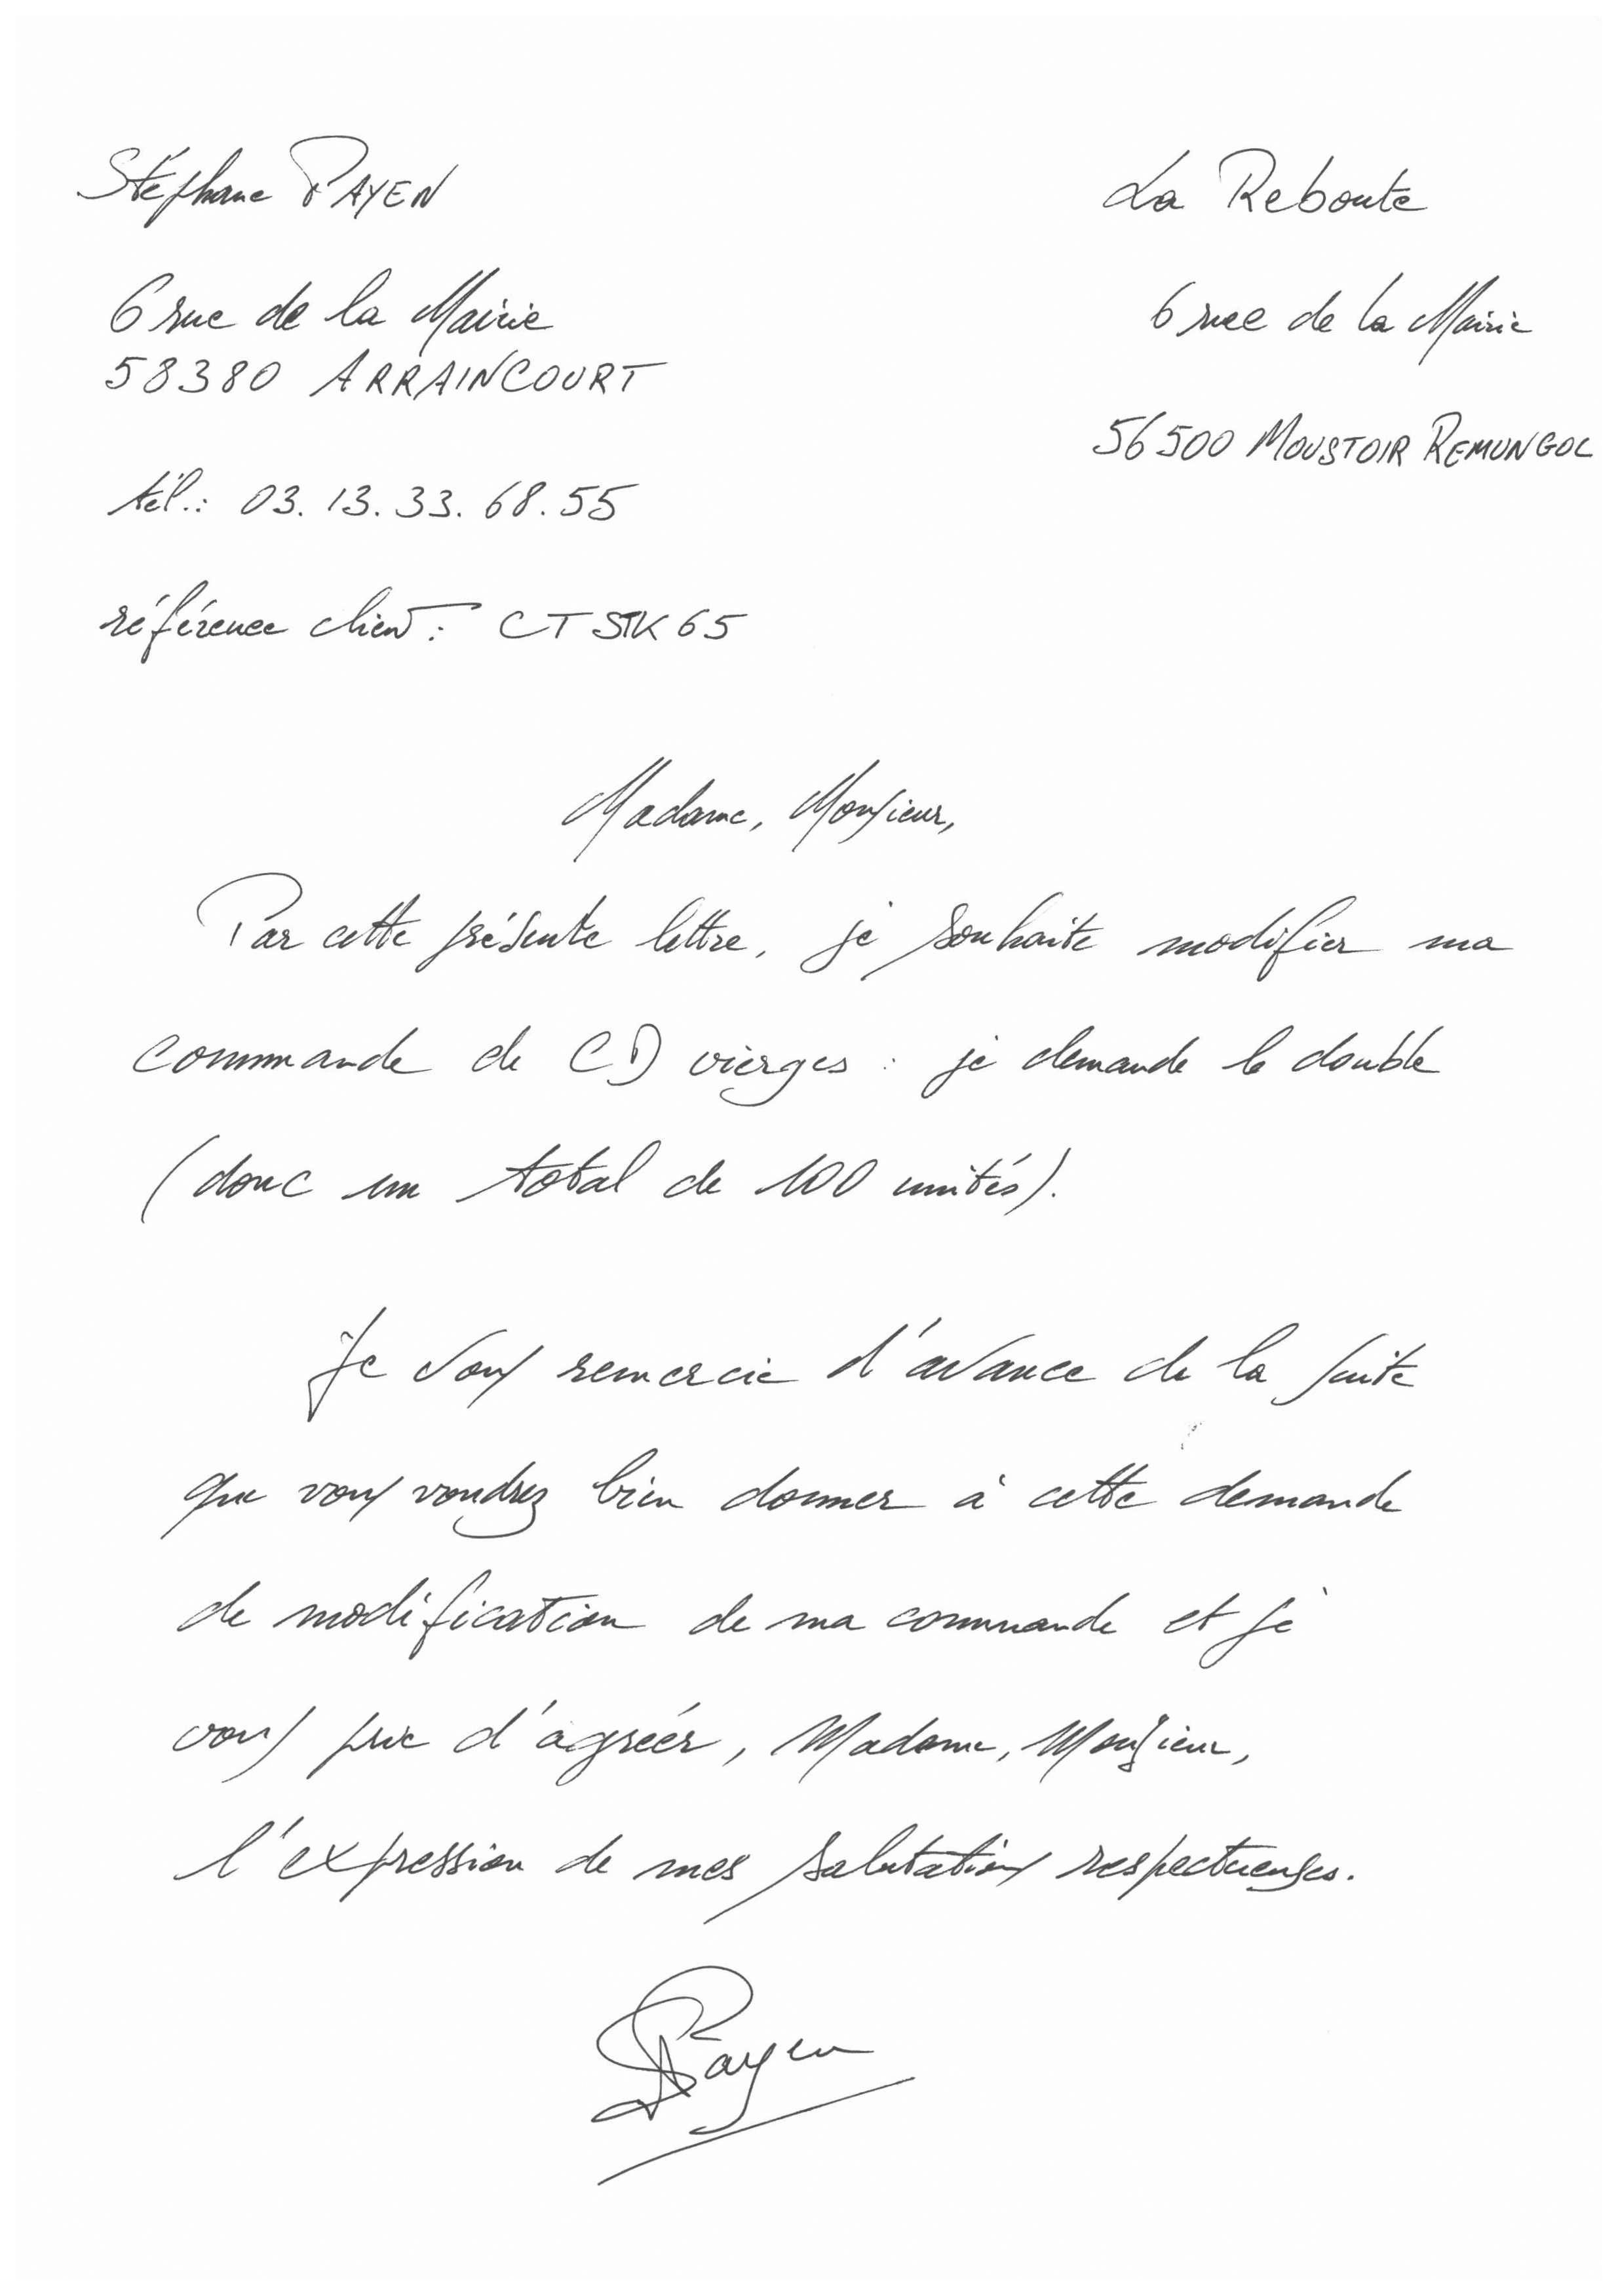 Stéphane PAYEN
6 rue de la Mairie
58380 ARRAINCOURT
tél.: 03.13.33.68.55
référence client: CTSTK65
La Reboute
6 rue de la Mairie
56500 MOUSTOIR REMUNGOL
Madame, Monsieur,
Par cette présente lettre, je souhaite modifier ma
commande de CD vierges : je demande le double
(donc un total de 100 unités).
Je vous remercie d'avance de la suite
que vous voudrez bien donner à cette demande
de modification de ma commande et je
vous prie d'agréer, Madame, Monsieur,
l'expression de mes salutations respectueuses.
SPayen